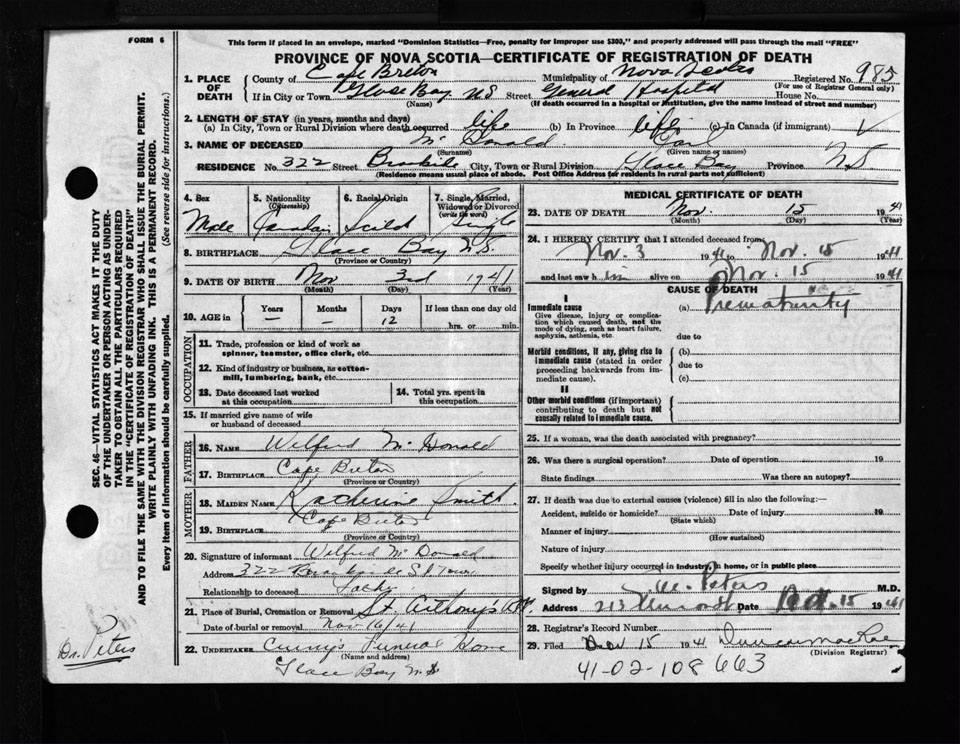 FORM 6
This form if placed in an envelope, marked "Dominion Statistics—Free, penalty for improper use $300," and properly addressed will pass through the mail "FREE"
PROVINCE OF NOVA SCOTIA—CERTIFICATE OF REGISTRATION OF DEATH
1. PLACE OF DEATH County of Cape Breton Municipality of Nova Scotia Registered No. 985
(For use of Registrar General only)
If in City or Town Glace Bay NS Street General Hospital House No.
(Name) (If death occurred in a hospital or institution, give the name instead of street and number)
2. LENGTH OF STAY (in years, months and days)
(a) In City, Town or Rural Division where death occurred life (b) In Province life (c) In Canada (if immigrant)
3. NAME OF DECEASED McDonald Carl
(Surname) (Given name or names)
RESIDENCE No. 322 Street City, Town or Rural Division Glace Bay Province NS
(Residence means usual place of abode. Post Office Address for residents in rural parts not sufficient)
4. Sex
Male
5. Nationality
(Citizenship)
6. Racial Origin
7. Single, Married, Widowed or Divorced
(write the word)
Single
8. BIRTHPLACE Glace Bay NS
(Province or Country)
9. DATE OF BIRTH Nov 3rd 1941
(Month) (Day) (Year)
10. AGE in
Years Months Days If less than one day old
– – 12 hrs. or min.
OCCUPATION
11. Trade, profession or kind of work as spinner, teamster, office clerk, etc.
12. Kind of industry or business, as cotton-mill, lumbering, bank, etc.
13. Date deceased last worked at this occupation
14. Total yrs. spent in this occupation
15. If married give name of wife or husband of deceased
FATHER
16. NAME Wilfred McDonald
17. BIRTHPLACE Cape Breton
(Province or Country)
MOTHER
18. MAIDEN NAME Katherine Smith
19. BIRTHPLACE Cape Breton
(Province or Country)
20. Signature of informant Wilfred McDonald
Address 322 St Town
Relationship to deceased Father
21. Place of Burial, Cremation or Removal St. Anthony's
Date of burial or removal Nov 16/41
22. UNDERTAKER Curry's Funeral Home
(Name and address)
Glace Bay N.S
MEDICAL CERTIFICATE OF DEATH
23. DATE OF DEATH Nov. 15 1941
(Month) (Day) (Year)
24. I HEREBY CERTIFY that I attended deceased from
Nov. 3 1941 to Nov. 15 1941
and last saw him alive on Nov. 15 1941
CAUSE OF DEATH
I
Immediate cause (a) Prematurity
Give disease, injury or complication which caused death, not the mode of dying, such as heart failure, asphyxia, asthenia, etc.
due to
Morbid conditions, if any, giving rise to immediate cause (stated in order proceeding backwards from immediate cause).
(b)
due to
(c)
II
Other morbid conditions (if important) contributing to death but not causally related to immediate cause.
25. If a woman, was the death associated with pregnancy?
26. Was there a surgical operation? Date of operation 19
State findings Was there an autopsy?
27. If death was due to external causes (violence) fill in also the following:—
Accident, suicide or homicide? Date of injury 19
(State which)
Manner of injury
(How sustained)
Nature of injury
Specify whether injury occurred in industry, in home, or in public place
Signed by Peters M.D.
Address Date Nov. 15 1941
28. Registrar's Record Number
29. Filed Nov 15 1941 Duncan MacRae
(Division Registrar)
41-02-108 663
SEC. 46—VITAL STATISTICS ACT MAKES IT THE DUTY
OF THE UNDERTAKER OR PERSON ACTING AS UNDERTAKER TO OBTAIN ALL THE PARTICULARS REQUIRED
IN THE "CERTIFICATE OF REGISTRATION OF DEATH"
AND TO FILE THE SAME WITH THE DIVISION REGISTRAR WHO SHALL ISSUE THE BURIAL PERMIT.
WRITE PLAINLY WITH UNFADING INK. THIS IS A PERMANENT RECORD.
Every item of information should be carefully supplied. (See reverse side for instructions.)
Dr. Peters